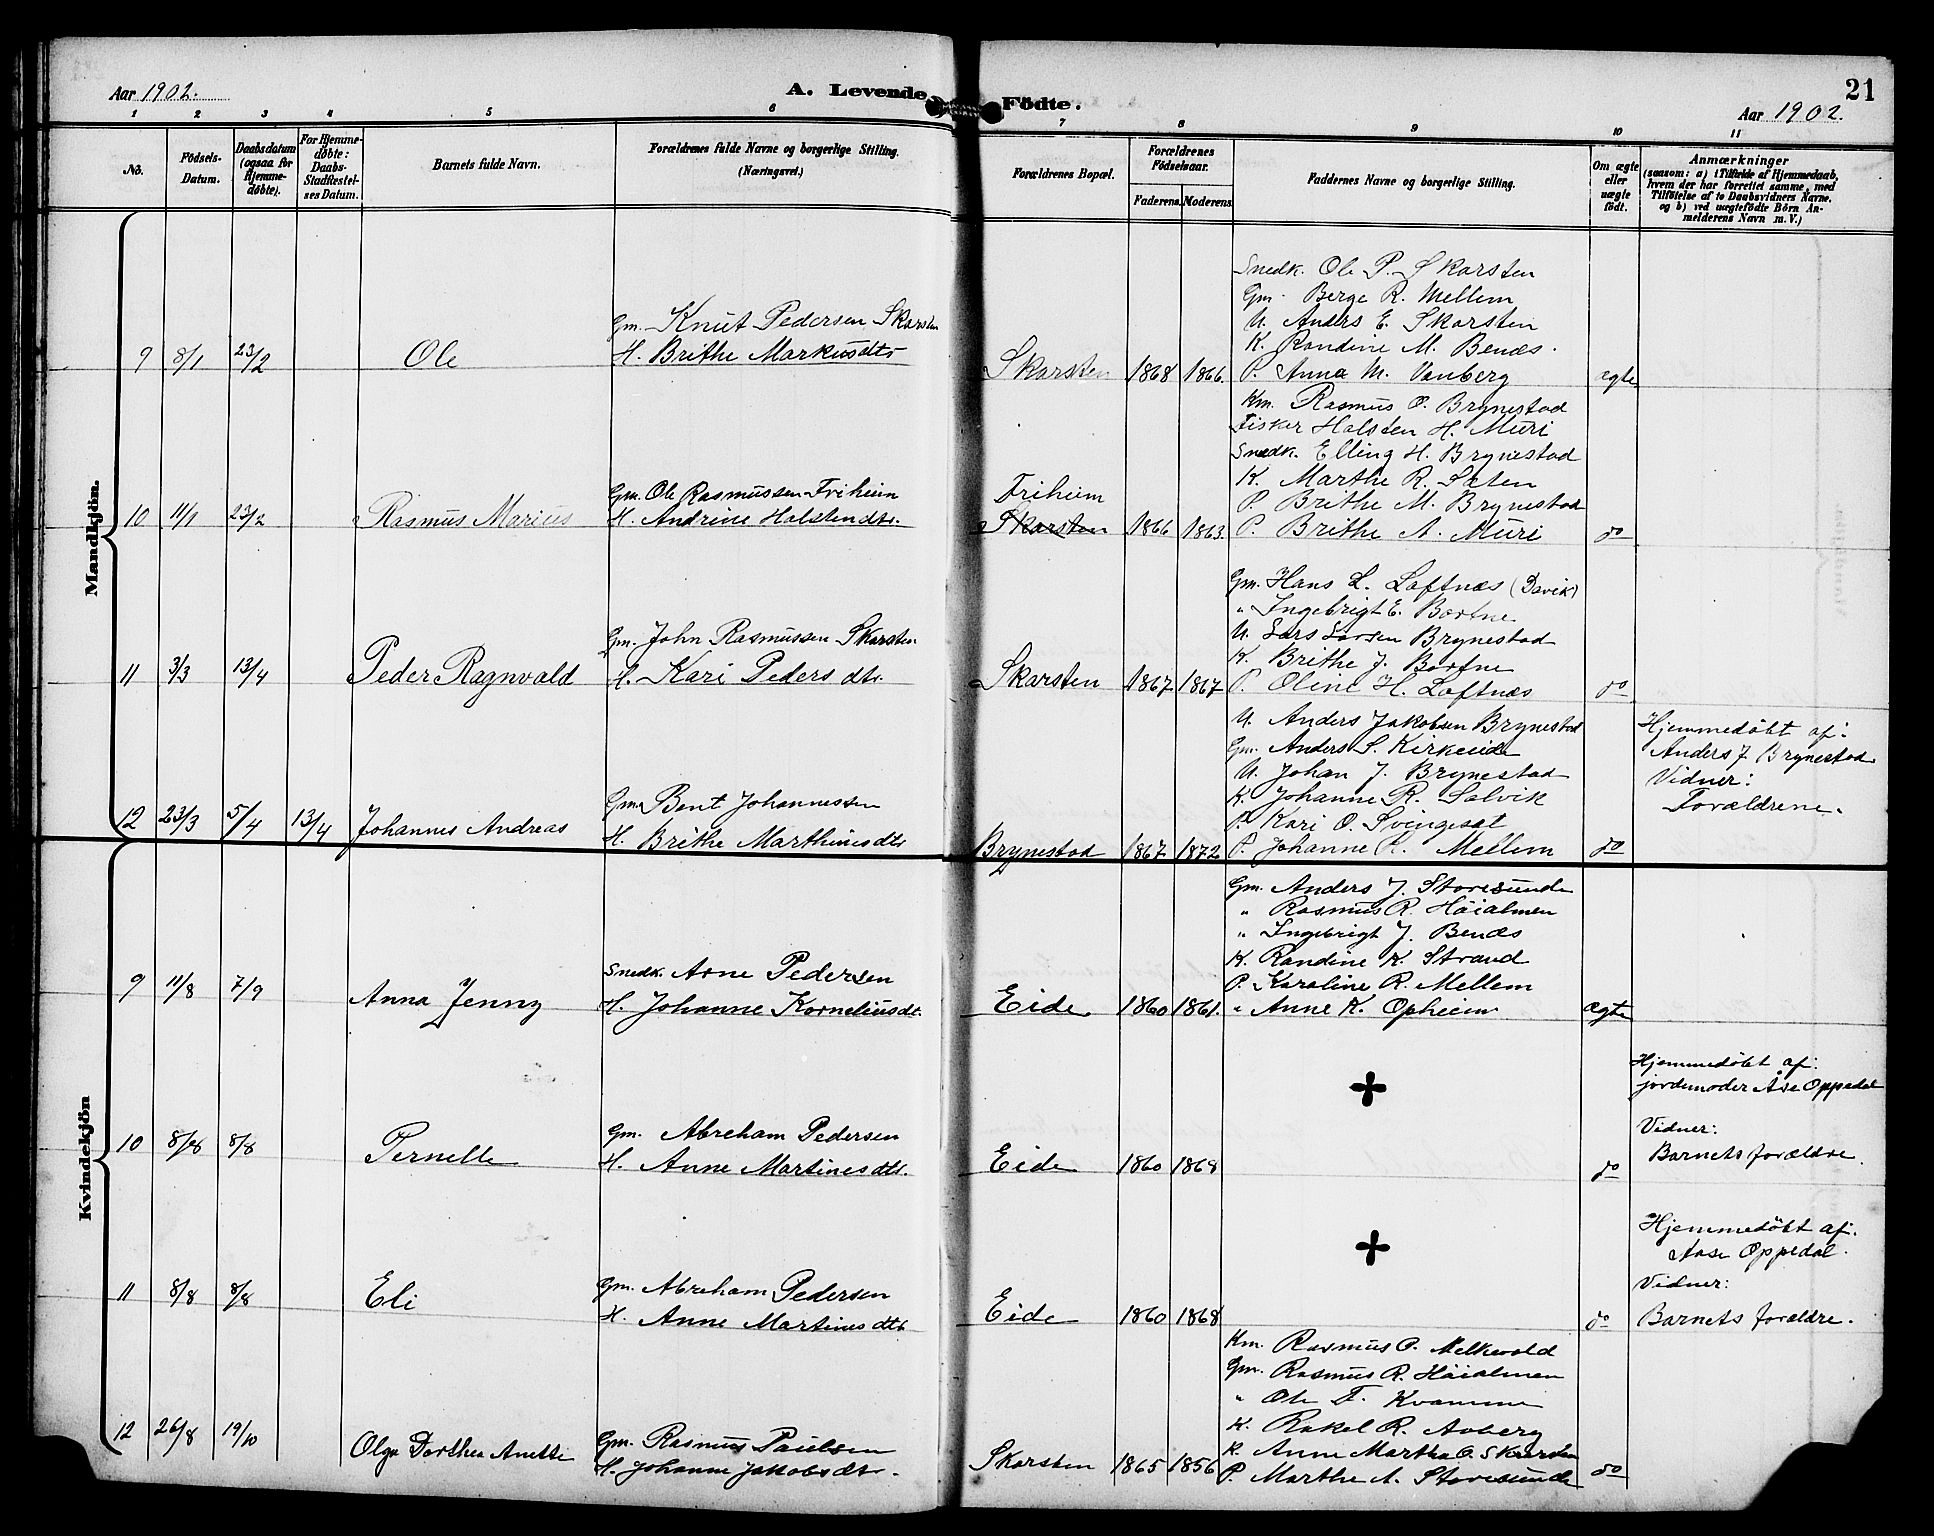 Aar 1902.
A. Levende Födte.
21
Aar 1902.
1 2 3 4 5 6 7 8 9 10 11
No.
Födsels-Datum.
Daabsdatum (ogsaa for Hjemme-döbte).
For Hjemme-döbte: Daabs-Stadfæstel-ses Datum.
Barnets fulde Navn.
Forældrenes fulde Navne og borgerlige Stilling. (Næringsvei.)
Forældrenes Bopæl.
Forældrenes Födselsaar.
Faderens. Moderens.
Faddernes Navne og borgerlige Stilling.
Om ægte eller uægte födt.
Anmærkninger
(saasom: a) i Tilfælde af Hjemmedaab, hvem der har forrettet samme, med Tilföielse af to Daabsvidners Navne. og b) ved uægtefödte Börn An-melderens Navn m. V.)
Mandkjön.
9 8/1 23/2 Ole
Gm. Knut Pedersen Skarsten
H. Brithe Markusdtr
Skarsten 1868 1866.
Snedk. Ole P. Skarsten
Gm. Berge R. Mellem
U. Anders E. Skarsten
K. Randine M. Benæs.
P. Anna M. Vanberg
ægte
10 11/1 23/2 Rasmus Marius
Gm. Ole Rasmussen Friheim
H. Andrine Halstendtr.
Friheim
Skarsten 1866 1863.
Km. Rasmus O. Brynestad
Fisker Halsten H. Muri
Snedk. Elling H. Brynestad
K. Marthe R. Sæten
P. Brithe M. Brynestad
P. Brithe A. Muri
do
11 3/3 13/4 Peder Ragnvald
Gm. John Rasmussen Skarsten
H. Kari Pedersdtr.
Skarsten 1867 1867
Gm. Hans L. Loftnæs (Davik)
" Ingebrigt E. Bortne
U. Lars Larsen Brynestad
K. Brithe J. Bortne
P. Oline H. Loftnæs
do
12 23/3 5/4 13/4 Johannes Andreas
Gm. Bent Johannessen
H. Brithe Marthinusdtr
Brynestad 1867 1872
U. Anders Jakobsen Brynestad
Gm. Anders S. Kirkeeide
U. Johan J. Brynestad
K. Johanne R. Salvik
P. Kari O. Svingeset
P. Johanne R. Mellem
do
Hjemmedøbt af:
Anders J Brynestad
Vidner:
Forældrene.
Kvindekjön
9 11/8 7/9 Anna Jenny
Snedk. Arne Pedersen
H. Johanne Korneliusdt.
Eide 1860 1861.
Gm. Anders J. Storesunde
" Rasmus R. Håialmen
" Ingebrigt J. Benæs
K. Randine K. Strand
P. Karoline R. Mellem
" Anne K. Opheim
ægte
10 8/8 8/8 Pernelle
Gm. Abraham Pedersen
H. Anne Martinusdtr.
Eide 1860 1868
do
Hjemmedøbt af:
jordemoder Åse Oppedal
Vidner:
Barnets forældre.
11 8/8 8/8 Eli
Gm. Abraham Pedersen
H. Anne Martinusdtr
Eide 1860 1868
do
Hjemmedøbt af:
Aase Oppedal.
Vidner:
Barnets forældre.
12 26/8 19/10 Olga Dorthea Anette
Gm. Rasmus Paulsen
H. Johanne Jakobsdtr.
Skarsten 1865 1856
Km. Rasmus O. Melkevold
Gm. Rasmus R. Håialmen
" Ole T. Kvamme
K. Rakel R. Aaberg
K. Anne Martha O. Skarsten
P. Marthe A. Storesunde
do